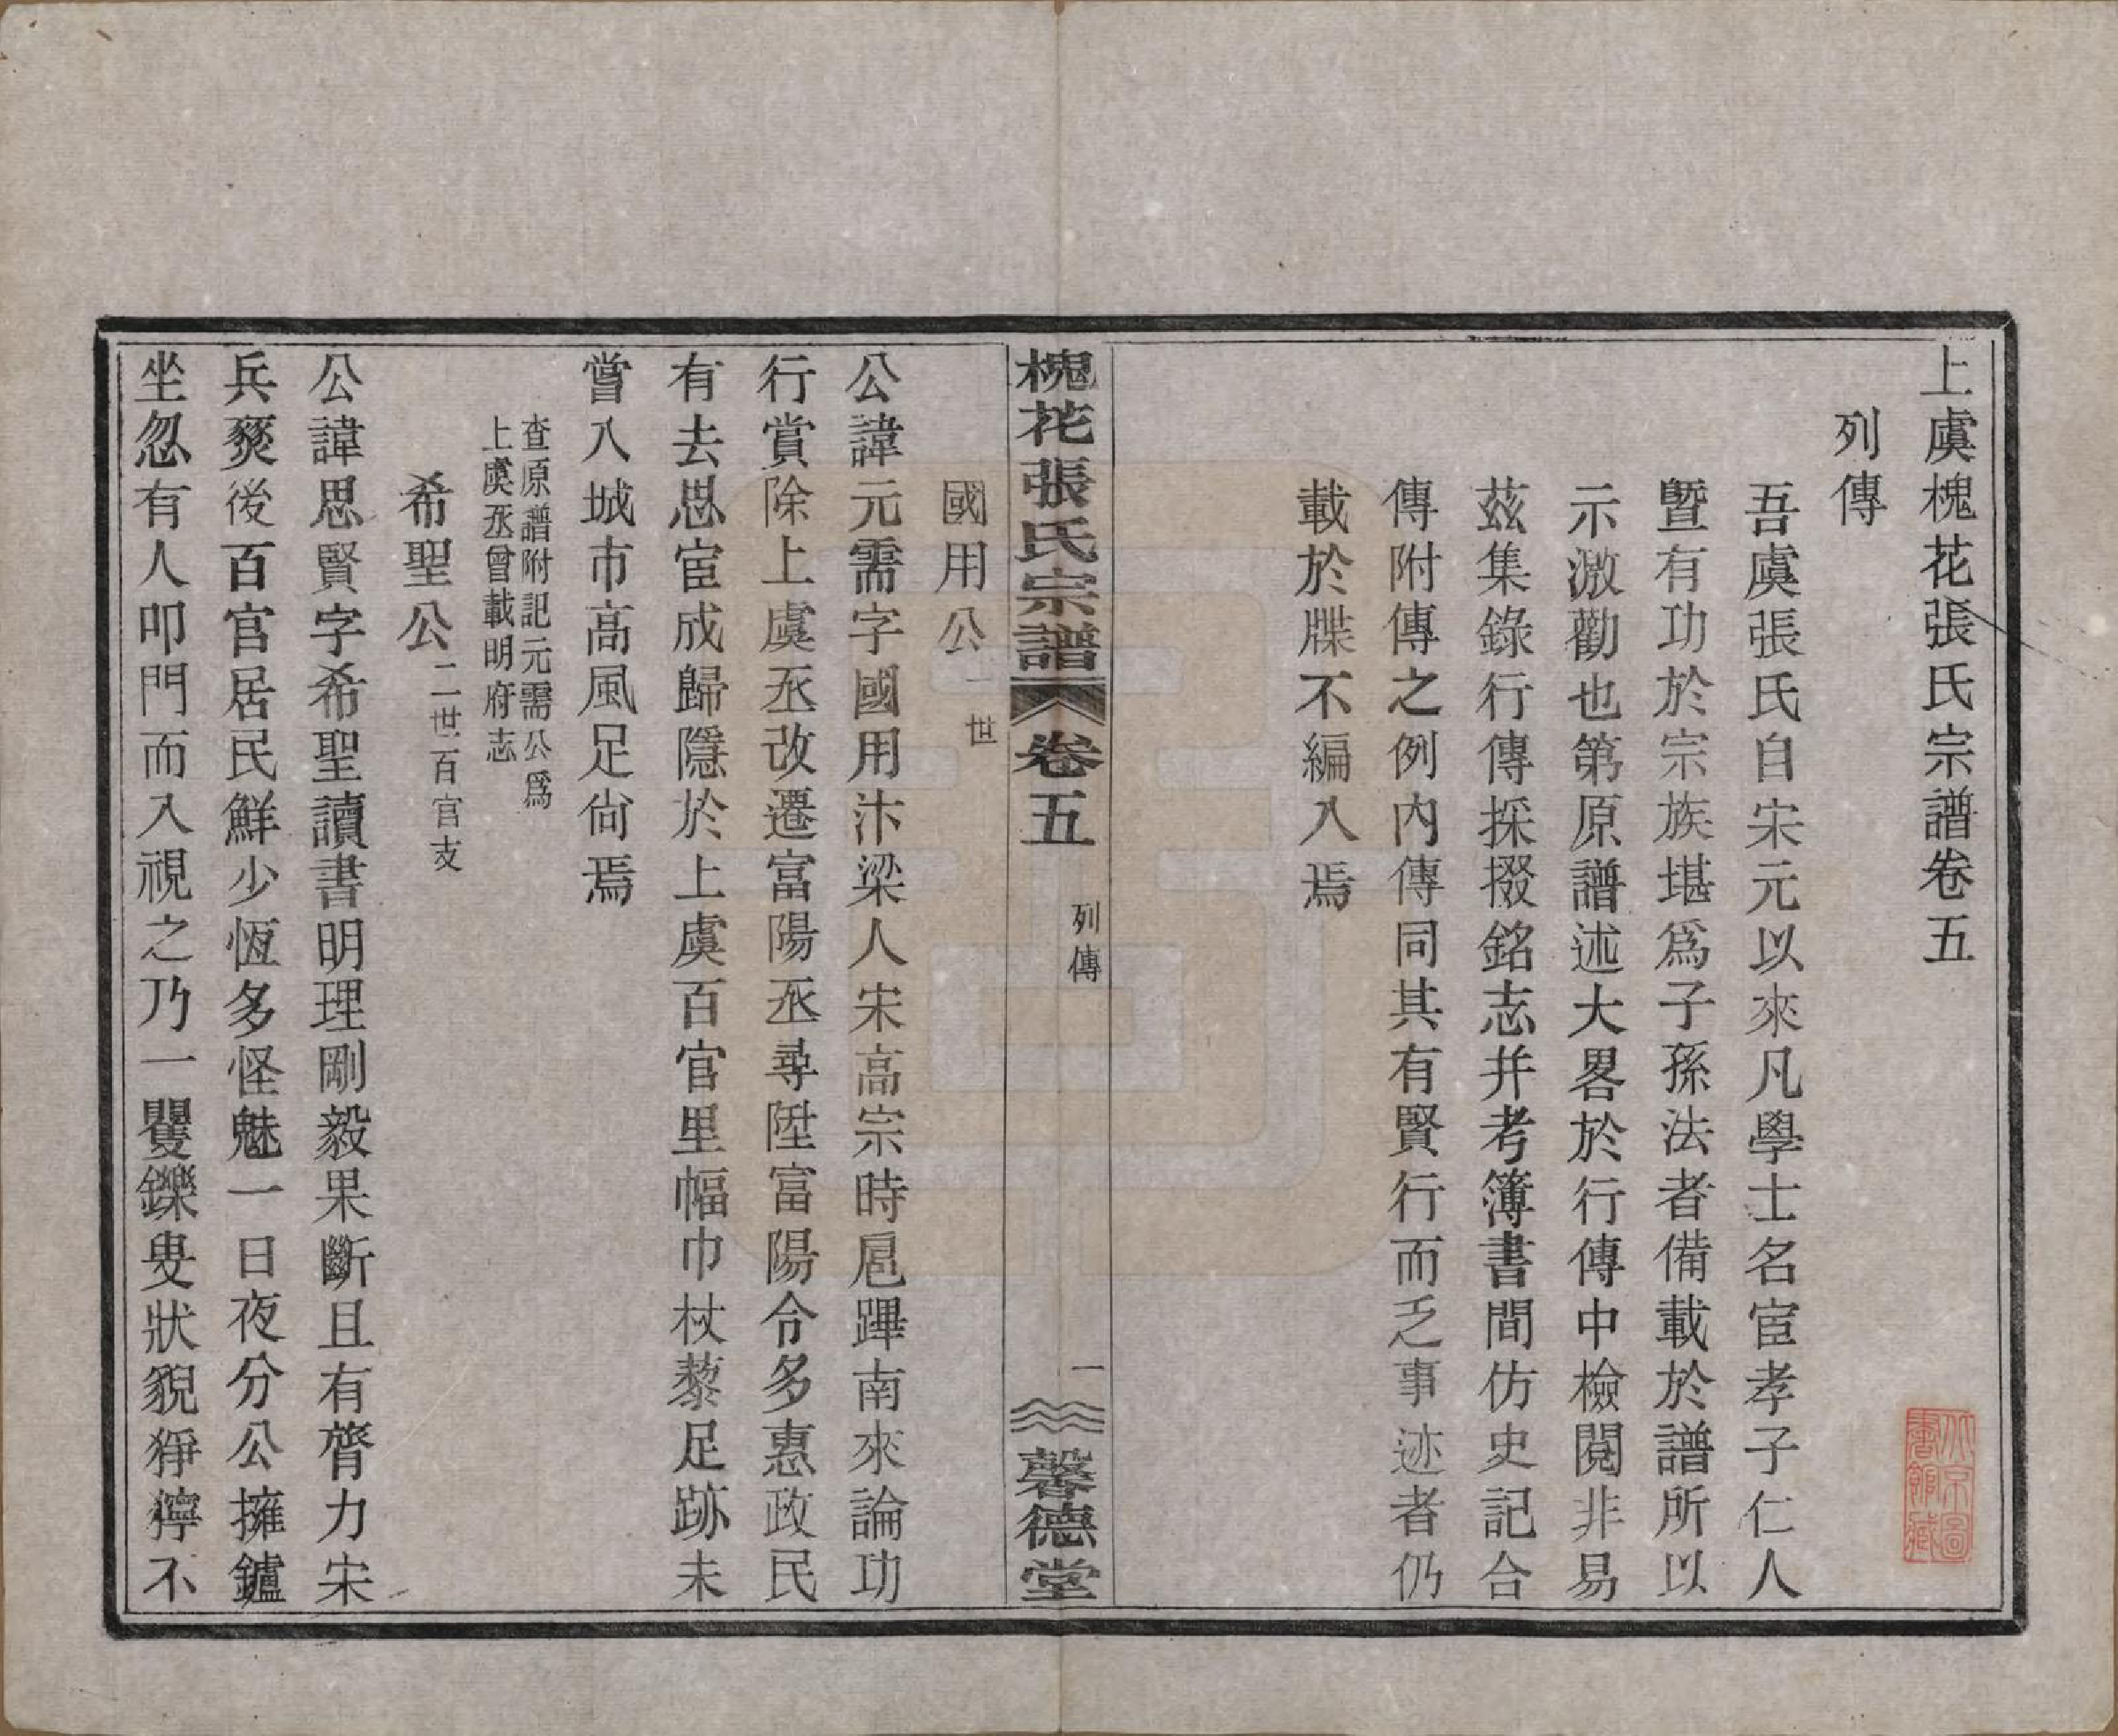 上虞槐花張氏宗譜卷五
列傳
吾虞張氏自宋元以來凡學士名宦孝子仁人
曁有功於宗族堪爲子孫法者備載於譜所以
示激勸也第原譜述大畧於行傳中檢閱非易
茲集錄行傳採掇銘志并考簿書間仿史記合
傳附傳之例內傳同其有賢行而乏事迹者仍
載於牒不編入焉
槐花張氏宗譜 卷五 列傳 一 馨德堂
國用公一世
公諱元需字國用汴梁人宋高宗時扈蹕南來論功
行賞除上虞丞改遷富陽丞尋陞富陽令多惠政民
有去思宦成歸隱於上虞百官里幅巾杖藜足跡未
嘗入城市高風足尙焉
查原譜附記元需公爲
上虞丞曾載明府志
希聖公二世百官支
公諱思賢字希聖讀書明理剛毅果斷且有膂力宋
兵燹後百官居民鮮少恆多怪魅一日夜分公擁鑪
坐忽有人叩門而入視之乃一矍鑠叟狀貌猙獰不
北京圖
書館藏